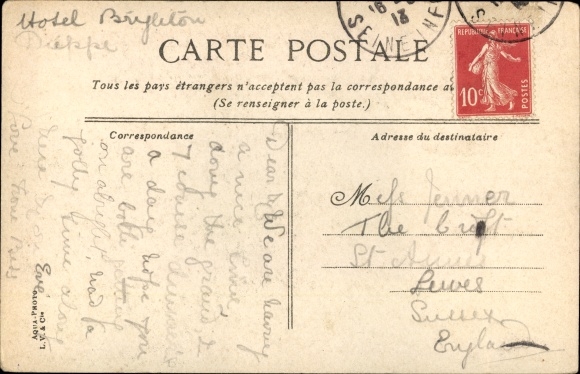 Hotel Brighton
Dieppe
SEINE INF
13
REPUBLIQUE FRANÇAISE
10c
POSTES
CARTE POSTALE
Tous les pays étrangers n'acceptent pas la correspondance au
(Se renseigner à la poste.)
Correspondance
Adresse du destinataire
Dear
We are having
a nice time,
doing the grand 2
7 course
a day hope you
are both getting
on alright, had a
jolly time
Love from
Miss Jenner
The Croft
St Annes
Lewes
Sussex
England
AQUA-PHOTO
L. V. & Cie